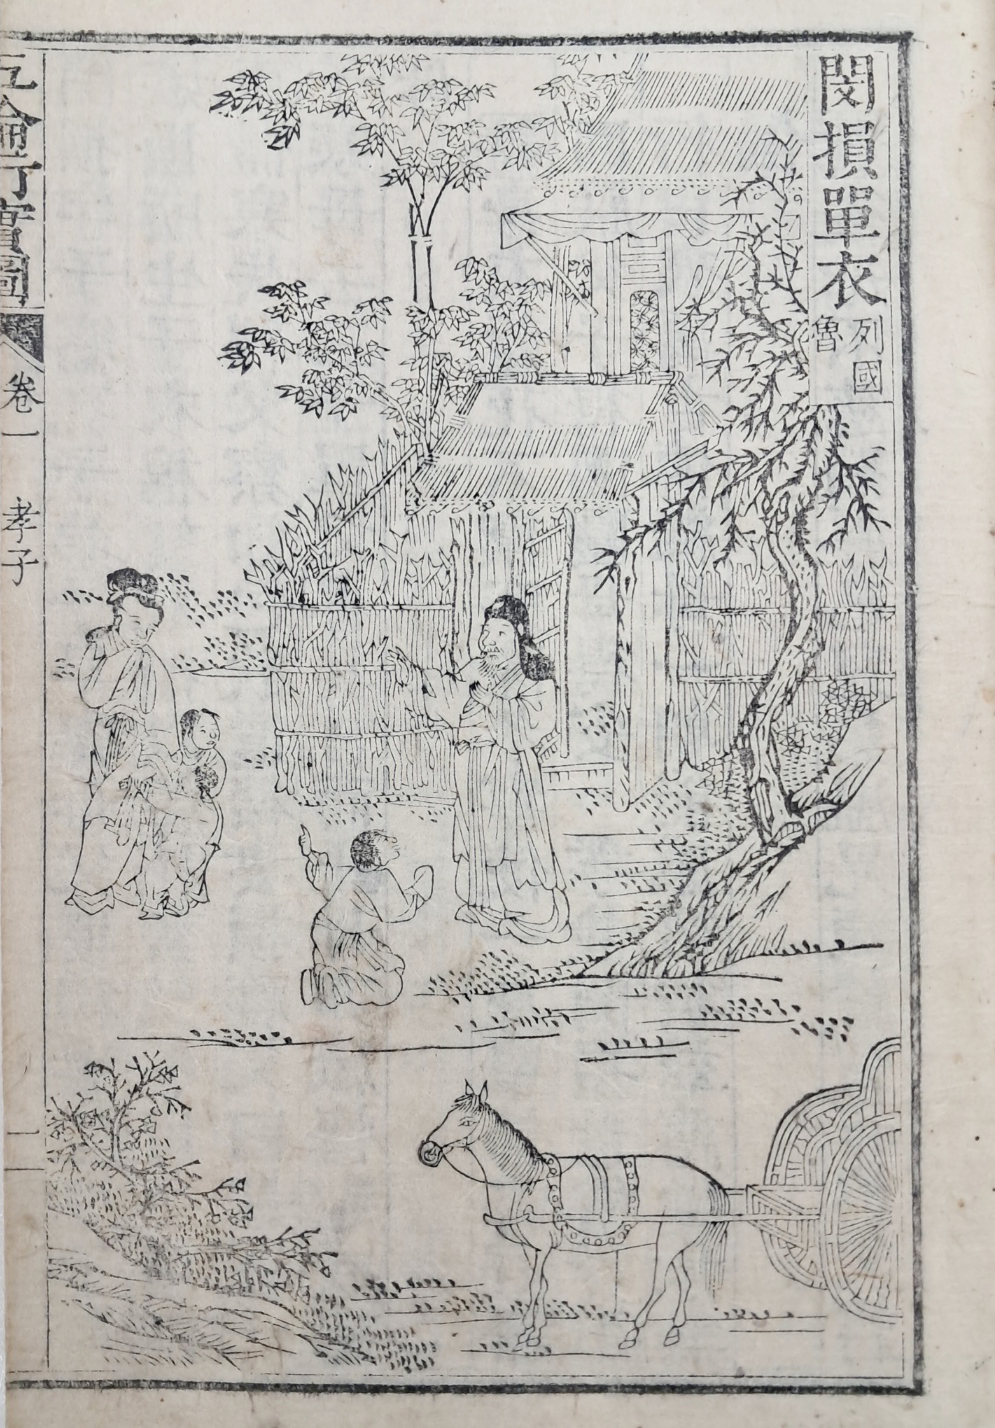 閔損單衣
列國
魯
五倫行實圖
卷一 孝子
一